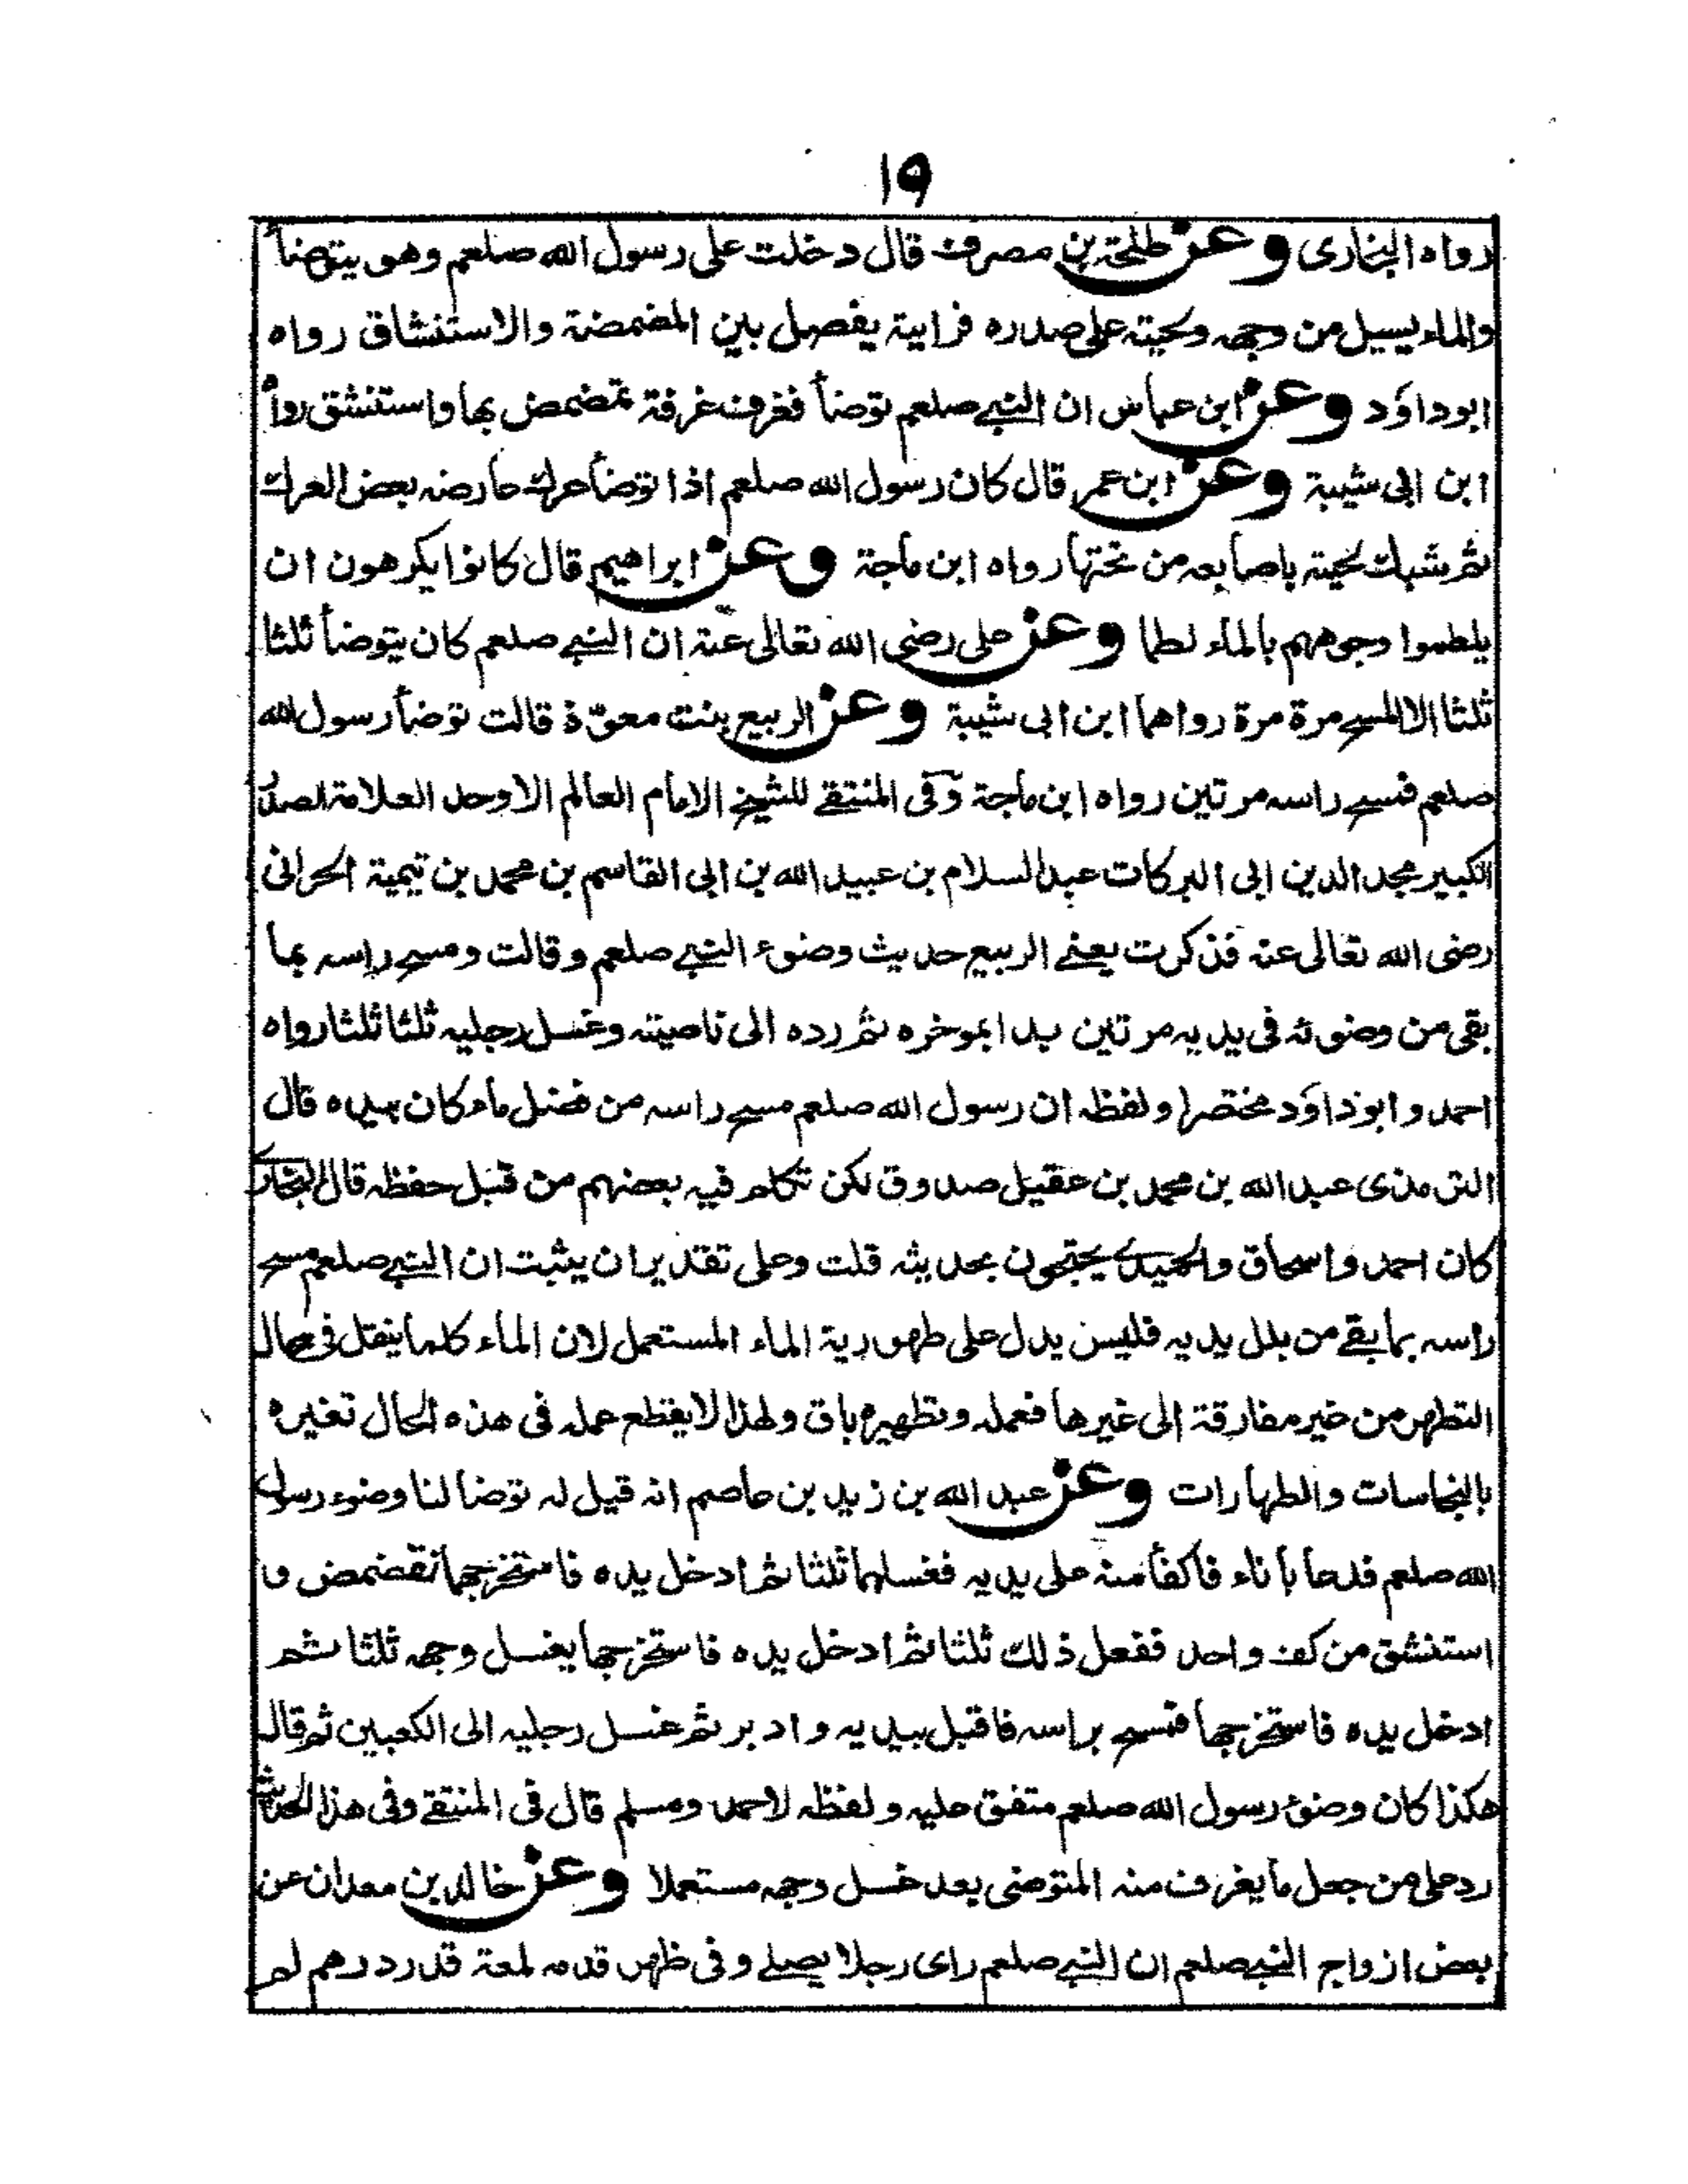 ١٩
رواه البخارى وعن طلحة بن مصرف قال دخلت على رسول الله صلعم وهو يتوضأ
والماء يسيل من وجهه ولحيته على صدره فرايته يفصل بين المضمضة والاستنشاق رواه
ابوداؤد وعن ابن عباس ان النبى صلعم توضأ فغرف غرفة تمضمض بها واستنشق رواه
ابن ابى شيبة وعن ابن عمر قال كان رسول الله صلعم اذا توضأ عرك عارضه بعض العرك
ثم شبك لحيته باصابعه من تحتها رواه ابن ماجة وعن ابراهيم قال كانوا يكرهون ان
يلطموا وجوههم بالماء لطما وعن على رضى الله تعالى عنه ان النبى صلعم كان يتوضأ ثلثا
ثلثا الا المسح مرة مرة رواهما ابن ابى شيبة وعن الربيع بنت معوّذ قالت توضأ رسول الله
صلعم فمسح راسه مرتين رواه ابن ماجة وفى المنتقى للشيخ الامام العالم الاوحد العلامة الصدر
الكبير مجد الدين ابى البركات عبد السلام بن عبيد الله بن ابى القاسم بن محمد بن تيمية الحرانى
رضى الله تعالى عنه فذكرت يعنى الربيع حديث وضوء النبى صلعم وقالت ومسح راسه بما
بقى من وضوئه فى يديه مرتين بدا بموخره ثم رده الى ناصيته وغسل رجليه ثلثا ثلثا رواه
احمد وابوداؤد مختصرا ولفظه ان رسول الله صلعم مسح راسه من فضل ماء كان بيده قال
الترمذى عبد الله بن محمد بن عقيل صدوق لكن تكلم فيه بعضهم من قبل حفظه قال البخارى
كان احمد واسحاق والحميدى يحتجون بحديثه قلت وعلى تقدير ان يثبت ان النبى صلعم مسح
راسه بما بقى من بلل يديه فليس يدل على طهورية الماء المستعمل لان الماء كلما ينقل فى محال
التطهر من غير مفارقة الى غيرها فعمله وتطهيره باق ولهذا لا يقطع عمله فى هذه الحال تغيره
بالنجاسات والطهارات وعن عبد الله بن زيد بن عاصم انه قيل له توضا لنا وضوء رسول
الله صلعم فدعا باناء فاكفأ منه على يديه فغسلهما ثلثا ثم ادخل يده فاستخرجها فمضمض و
استنشق من كف واحد ففعل ذلك ثلثا ثم ادخل يده فاستخرجها يغسل وجهه ثلثا ثم
ادخل يده فاستخرجها فمسح براسه فاقبل بيديه وادبر ثم غسل رجليه الى الكعبين ثم قال
هكذا كان وضوء رسول الله صلعم متفق عليه ولفظه لاحمد ومسلم قال فى المنتقى وفى هذا الحديث
رد على من جعل ما يغرف منه المتوضى بعد غسل وجهه مستعملا وعن خالد بن معدان عن
بعض ازواج النبى صلعم ان النبى صلعم راى رجلا يصلى وفى ظهر قدمه لمعة قدر درهم لم